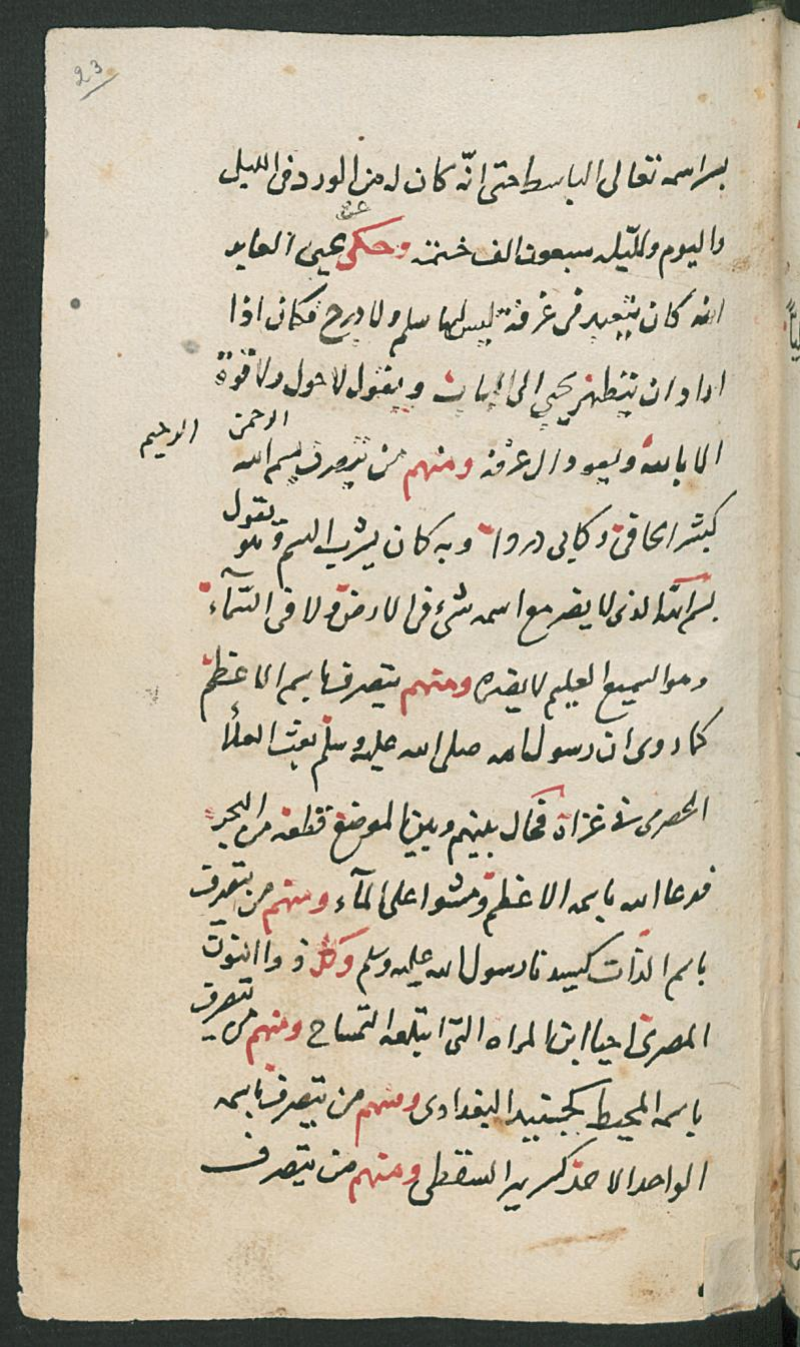 23
بسر اسمه تعالى الباسط حتى انّه كان له من الورد فى الليل
واليوم والليله سبعون الف ختمه وحكى عن يحيى العابد
انه كان يتعبد فى غرفة ليس لها سلم ولا درج فكان اذا
اراد ان يتطهر يجيي الى الباب ويقول لا حول ولا قوة
الا بالله ويعود الى غرفته ومنهم من يتصرف بسم الله الرحمن الرحيم
كبشر الحافى وكابى دردا وبه كان يشرب السم وهو يقول
بسم الله الذى لا يضر مع اسمه شئ فى الارض ولا فى السّمآء
وهو السميع العليم لا يضره ومنهم يتصرف باسم الاعظم
كما روى ان رسول الله صلى الله عليه وسلم بعث العلأ
الحضرمى فى غزاة فحال بينهم وبين الموضع قطعه من البحر
فدعا الله باسمه الاعظم ومشوا على المآء ومنهم من يتصرف
باسم الذات كسيدنا رسول الله عليه وسلم وكل ذو النون
المصرى احيا ابن المراه التى ابتلعه التمساح ومنهم من يتصرف
باسمه المحيط كجنيد البغدادى ومنهم من يتصرف باسمه
الواحد الاحد كسرير السقطى ومنهم من يتصرف